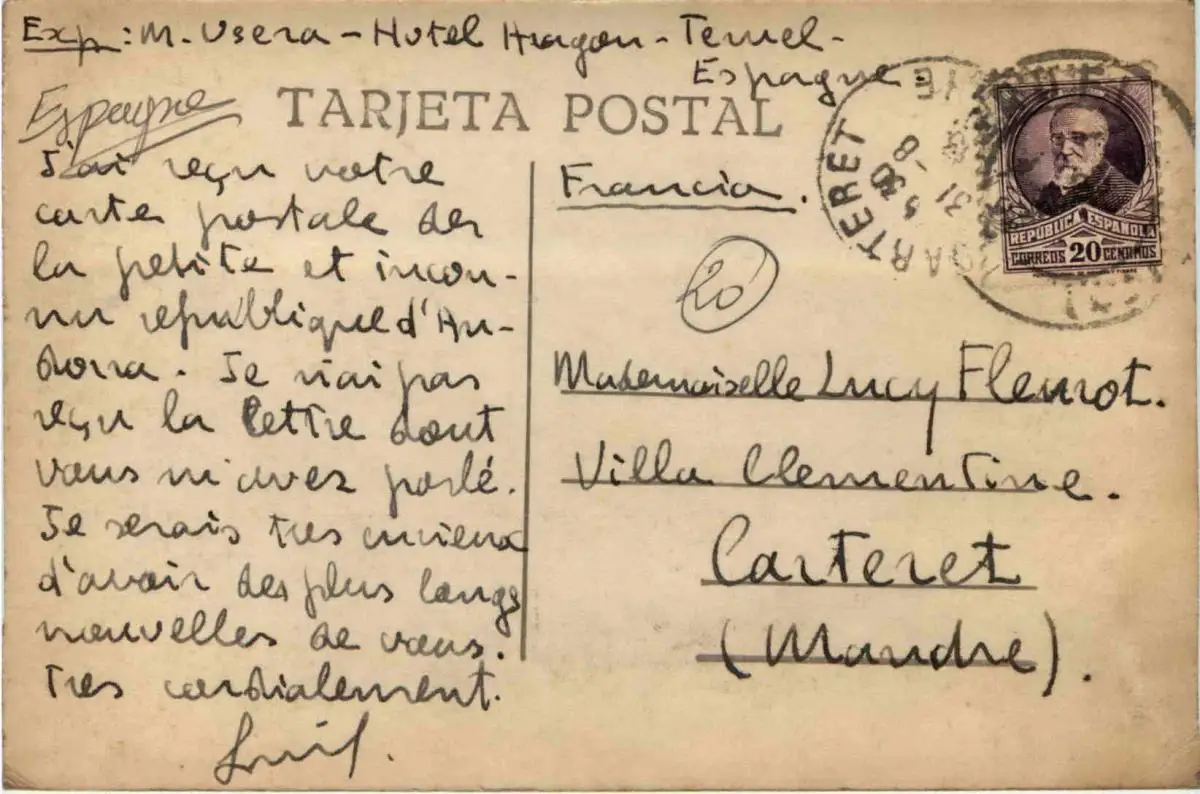 Exp: M. Usera - Hotel Aragon - Teruel -
Espagne.
Espagne
TARJETA POSTAL
J'ai reçu votre
carte postale des
la petite et incon-
nu republique d'An-
dorra. Je n'ai pas
reçu la lettre dont
vous m'avez parlé.
Je serais tres curieux
d'avoir des plus longs
nouvelles de vous.
Tres cordialement.
Luis.
Francia.
20
Mademoiselle Lucy Fleurot.
Villa Clementine.
Carteret
(Manche).
CARTERET
31 -8
REPUBLICA ESPAÑOLA
CORREOS 20 CENTIMOS